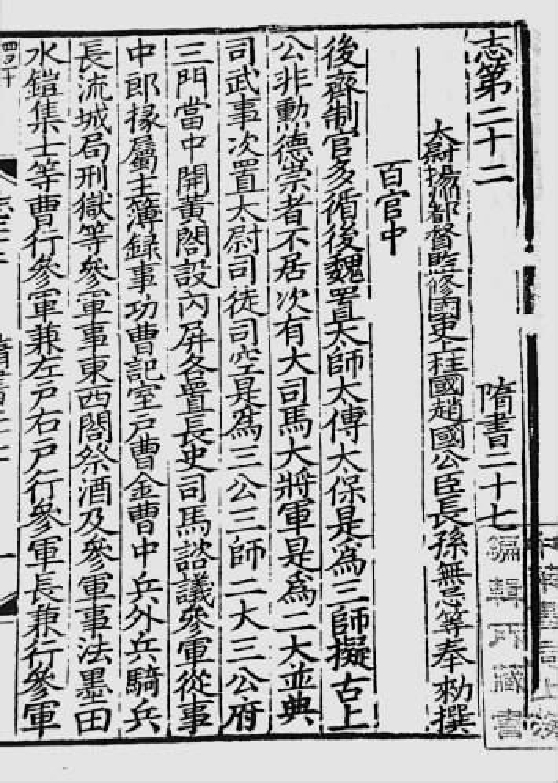 志第二十二　隋書二十七
太尉揚州都督監修國史上柱國趙國公臣長孫無忌等奉勑撰
百官中
後齊制官多循後魏置太師太傅太保是為三師擬古上
公非勳德崇者不居次有大司馬大將軍是為二大並典
司武事次置太尉司徒司空是為三公三師二大三公府
三門當中開黃閤設內屏各置長史司馬諮議參軍從事
中郎掾屬主簿録事功曹記室戶曹金曹中兵外兵騎兵
長流城局刑獄等參軍事東西閤祭酒及參軍事法墨田
水鎧集士等曹行參軍兼左戶右戶行參軍長兼行參軍